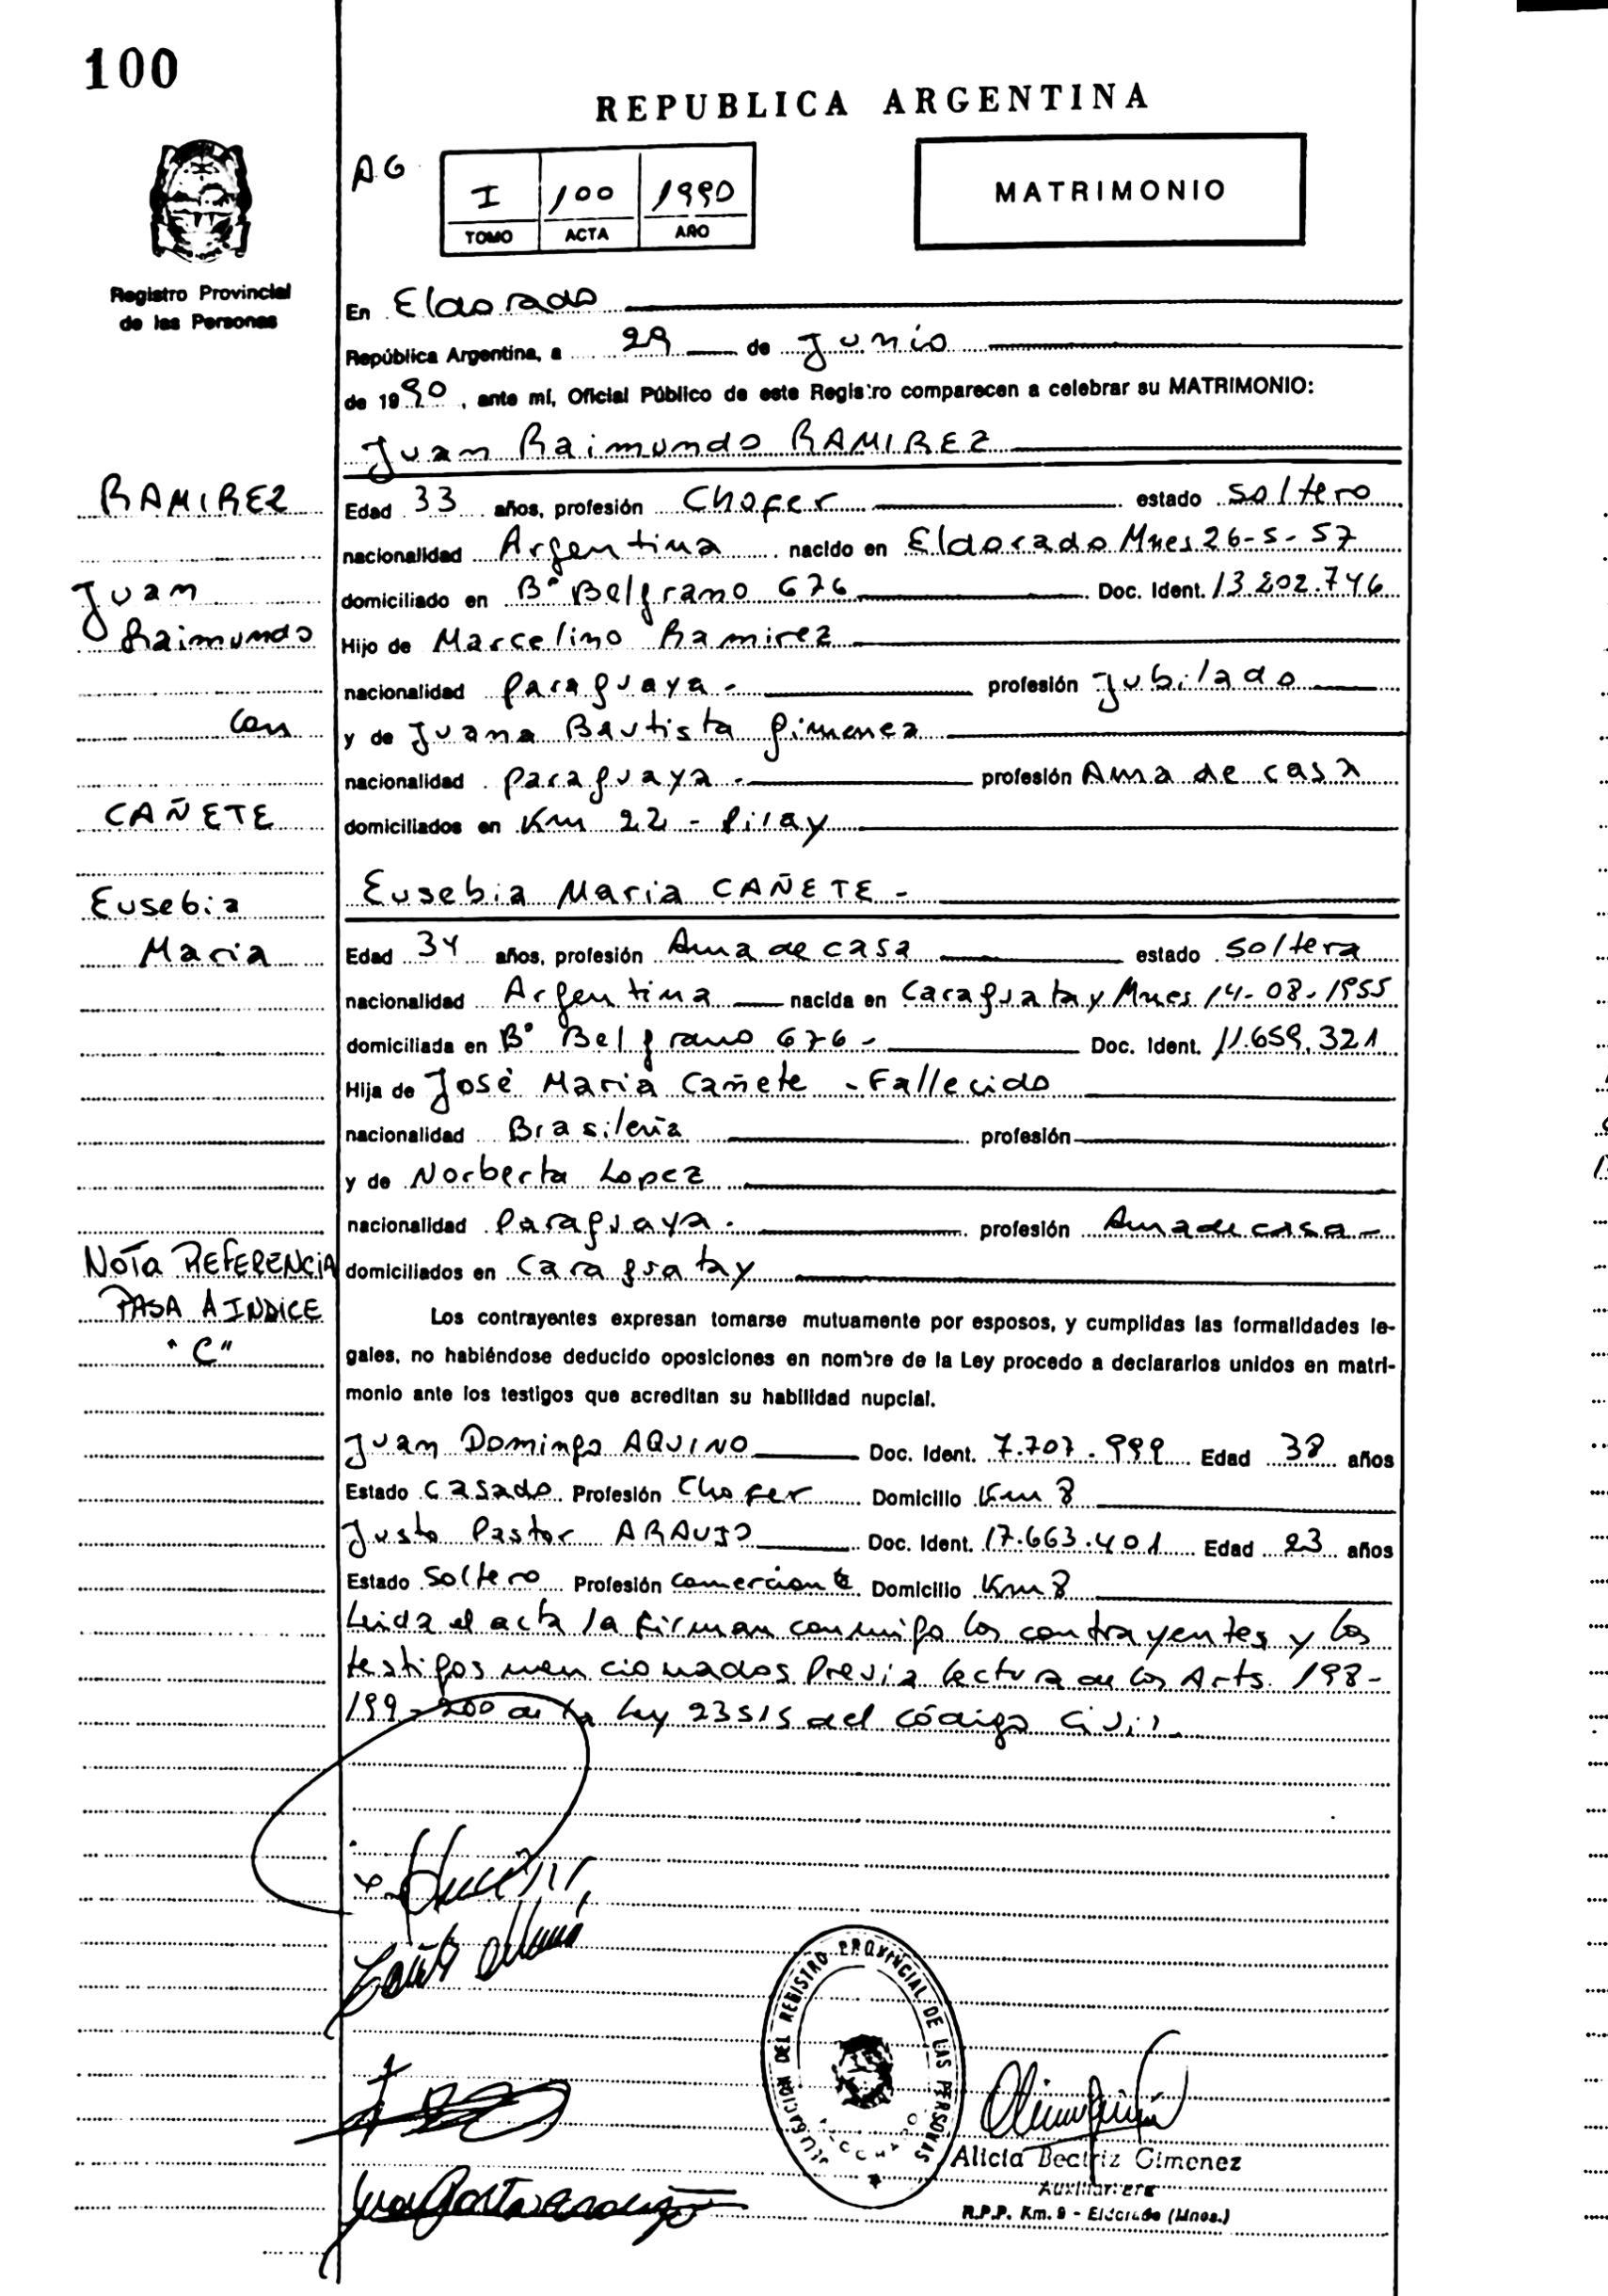 100
REPUBLICA ARGENTINA
A.G
I 100 1990
TOMO ACTA AÑO
MATRIMONIO
Registro Provincial
de las Personas
En Eldorado
República Argentina, a 29 de Junio
de 1990, ante mí, Oficial Público de este Registro comparecen a celebrar su MATRIMONIO:
Juan Raimundo RAMIREZ
RAMIREZ
Juan
Raimundo
Con
CAÑETE
Eusebia
Maria
Edad 33 años, profesión Chofer estado Soltero
nacionalidad Argentina nacido en Eldorado Mnes 26-5-57
domiciliado en Bº Belgrano 676 Doc. Ident. 13.202.746
Hijo de Marcelino Ramirez
nacionalidad Paraguaya.- profesión Jubilado
y de Juana Bautista Gimenez
nacionalidad Paraguaya.- profesión Ama de casa
domiciliados en Km 22 - Piray
Eusebia Maria CAÑETE -
Edad 34 años, profesión Ama de casa estado Soltera
nacionalidad Argentina nacida en Caraguatay Mnes 14-08-1955
domiciliada en Bº Belgrano 676 - Doc. Ident. 11.659.321
Hija de José Maria Cañete - Fallecido
nacionalidad Brasileña profesión
y de Norberta Lopez
nacionalidad Paraguaya.- profesión Ama de casa -
domiciliados en Caraguatay
NOTA REFERENCIA
PASA A INDICE
"C"
Los contrayentes expresan tomarse mutuamente por esposos, y cumplidas las formalidades le-
gales, no habiéndose deducido oposiciones en nombre de la Ley procedo a declararlos unidos en matri-
monio ante los testigos que acreditan su habilidad nupcial.
Juan Domingo AQUINO Doc. Ident. 7.707.999 Edad 38 años
Estado Casado Profesión Chofer Domicilio Km 8
Justo Pastor ARAUJO Doc. Ident. 17.663.401 Edad 23 años
Estado Soltero Profesión Comerciante Domicilio Km 8
Leida el acta la firman conmigo los contrayentes y los
testigos mencionados Previa lectura de los Arts. 198-
199-200 de la Ley 23515 del Código Civil.
DELEGACION DEL REGISTRO PROVINCIAL DE LAS PERSONAS
Alicia Beatriz Gimenez
R.P.P. Km. 9 - Eldorado (Mnes.)